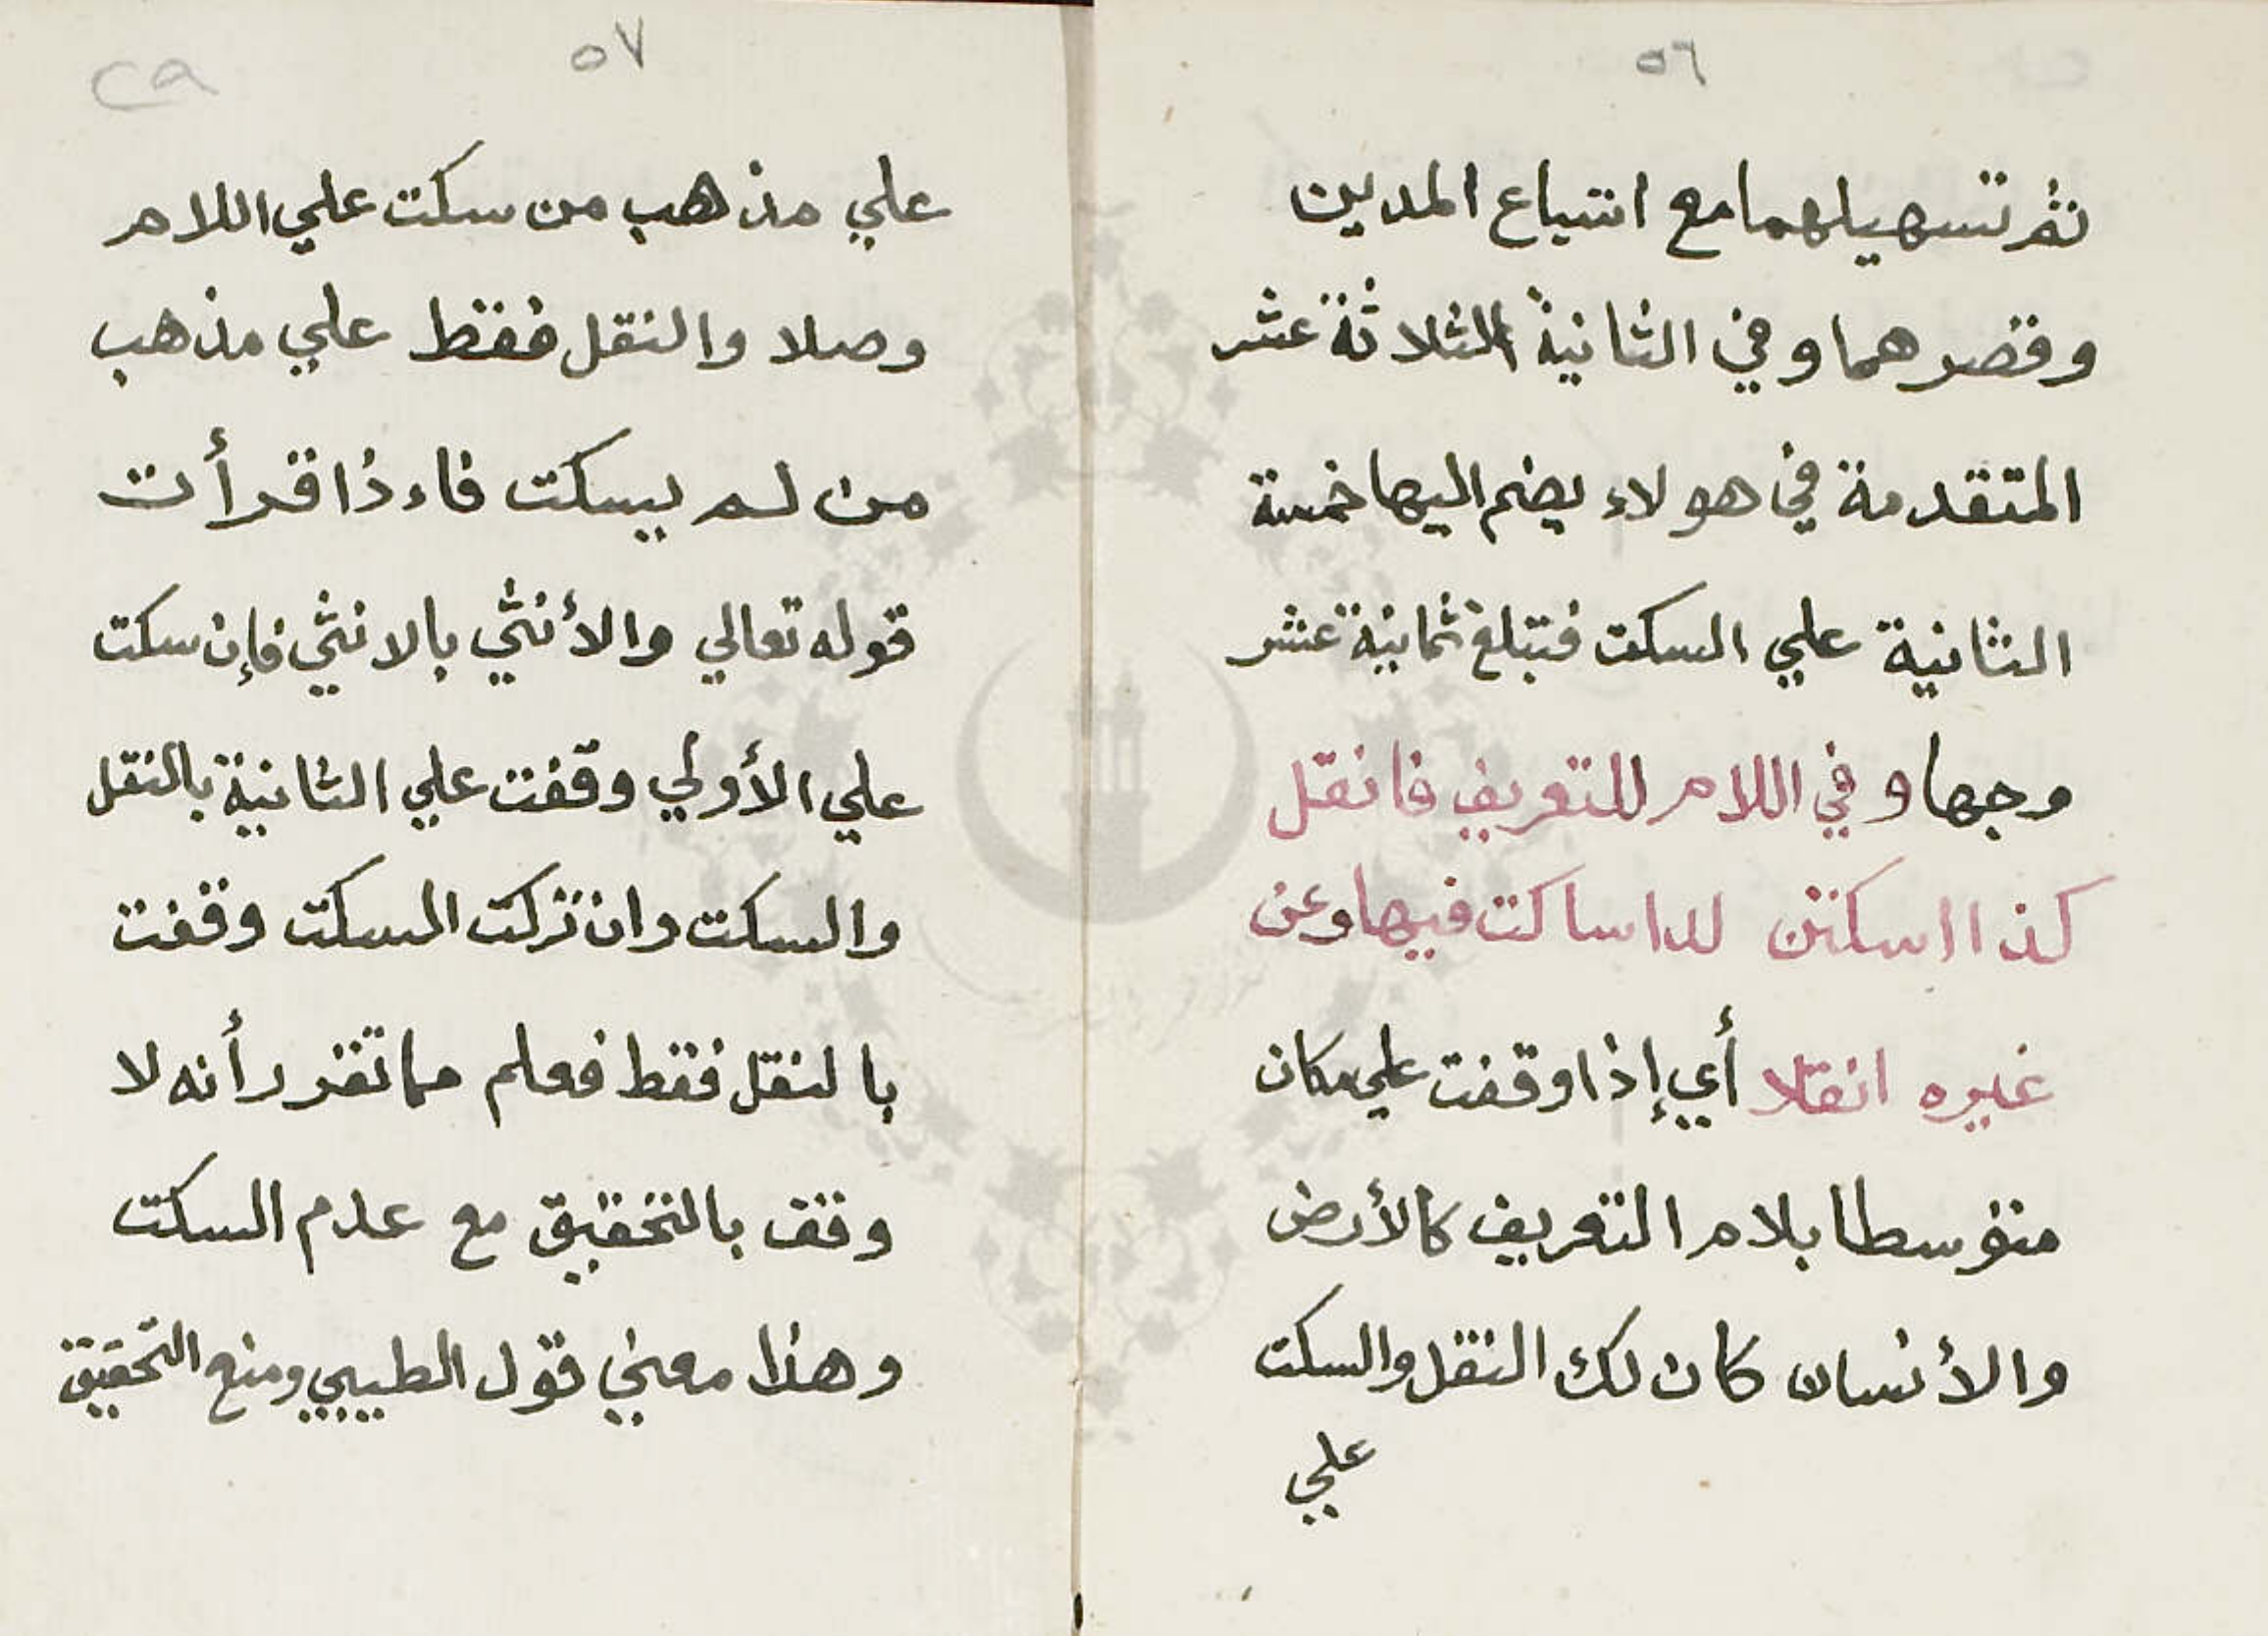 ٥٦
ثم تسهيلهما مع اشباع المدين
وقصرهما وفي الثانية الثلاثة عشر
المتقدمة في هولاء يضم اليها خمسة
الثانية علي السكت فتبلغ ثمانية عشر
وجها وفي اللام للتعريف فانقل
كذا اسكتن لدا ساكت فيها وعن
غيره انقلا أي إذا وقفت علي مكان
متوسطا بلام التعريف كالأرض
والأنسان كان لك النقل والسكت
علي
٥٧
٢٩
علي مذهب من سكت علي اللام
وصلا والنقل فقط علي مذهب
من لم يسكت فاءذا قرأت
قوله تعالي والأنثي بالانثي فإن سكت
علي الأولي وقفت علي الثانية بالنقل
والسكت وان تركت السكت وقفت
بالنقل فقط فعلم مما تقرر أنه لا
وقف بالتحقيق مع عدم السكت
وهذا معني قول الطيبي ومنع التحقيق